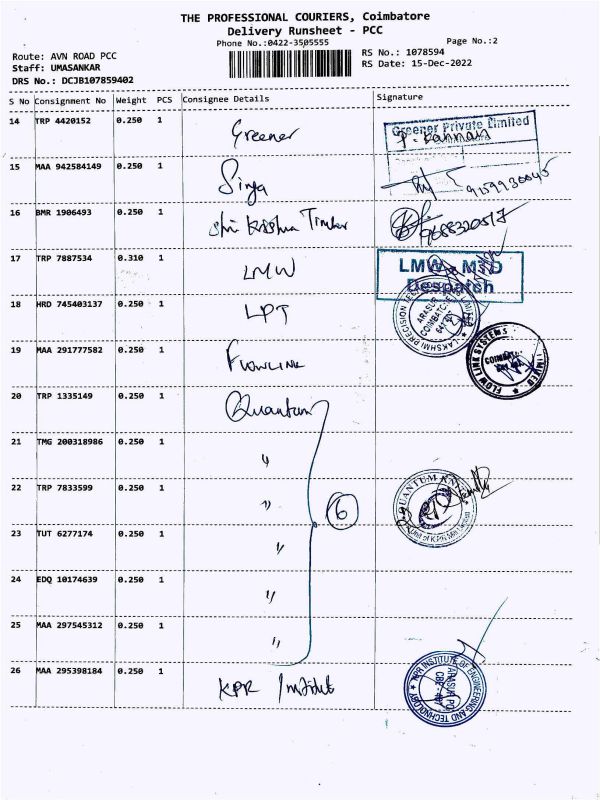 THE PROFESSIONAL COURIERS, Coimbatore
Delivery Runsheet - PCC
Phone No.:0422-3505555
Page No.:2
Route: AVN ROAD PCC
RS No.: 1078594
Staff: UMASANKAR
RS Date: 15-Dec-2022
DRS No.: DCJB107859402
S No Consignment No Weight PCS Consignee Details Signature
14 TRP 4420152 0.250 1 Greener
Greener Private Limited
P. Kannan
15 MAA 942584149 0.250 1 Sirya
9159930045
16 BMR 1906493 0.250 1 Shri Krishna Timber
9688320517
17 TRP 7887534 0.310 1 LMW
LMW MTD
Despatch
18 HRD 745403137 0.250 1 LPT
LAKSHMI PRECISION
ARASUR
COIMBATORE
LIMITED
19 MAA 291777582 0.250 1 FLOWLINK
FLOW LINK SYSTEMS
LIMITED
20 TRP 1335149 0.250 1 Quantum
21 TMG 200318986 0.250 1 "
22 TRP 7833599 0.250 1 " 6
QUANTUM KNITS
Unit of K.P.R. Mill Limited
23 TUT 6277174 0.250 1 "
24 EDQ 10174639 0.250 1 "
25 MAA 297545312 0.250 1 "
26 MAA 295398184 0.250 1 KPR Institute
KPR INSTITUTE OF ENGINEERING AND TECHNOLOGY
ARASUR PO